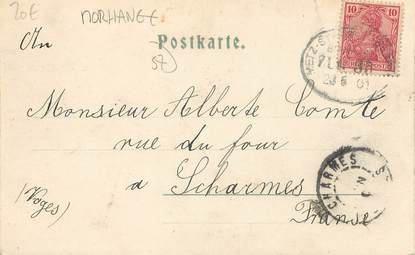 20€ MORHANGE
An
Postkarte.
57
10 10
23 6 01
Monsieur Alberte Comte
rue du four
a Scharmes
(Voges)
Franse
CHARMES